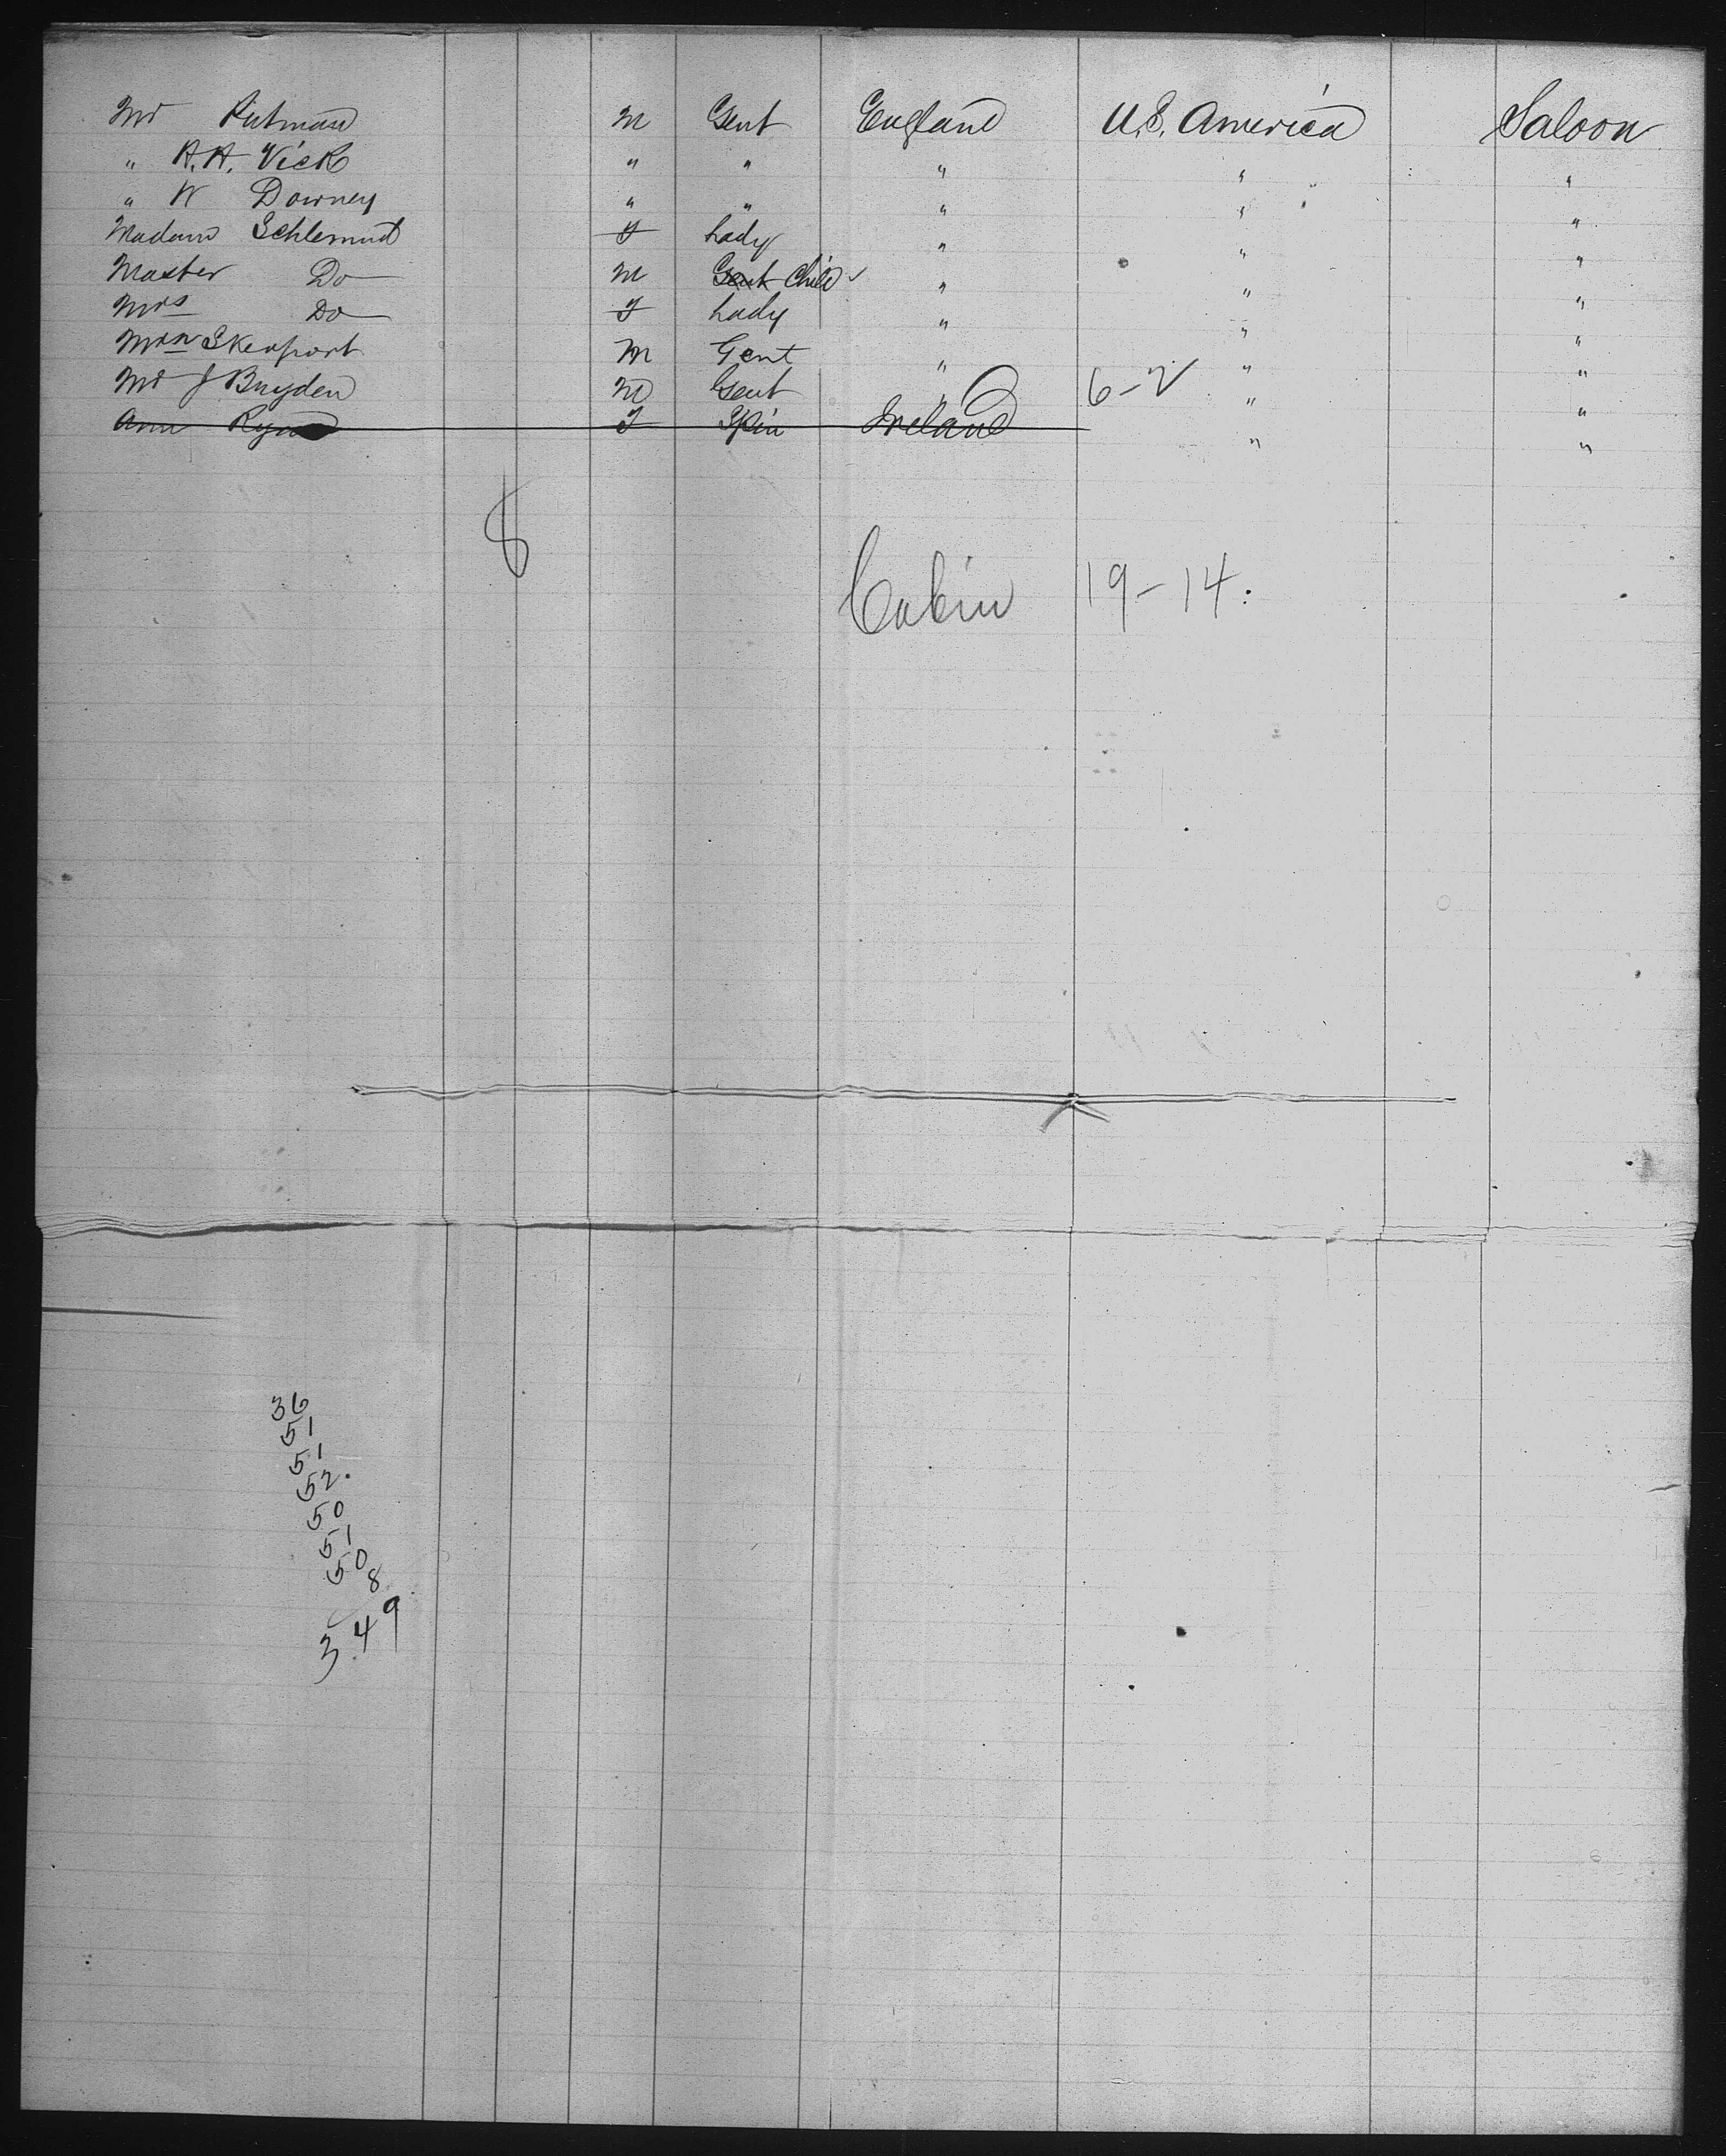 Mr Putman M Gent England U.S. America Saloon
" A. A. Vick " " " " "
" W Downey " " " " "
Madam Schlemut F Lady " " "
Master Do M Gent Child " " "
Mrs Do F Lady " " "
M Gent " " "
Mr J Bryden M Gent " 6-2 " "
Ann F Spin Ireland " "
8
Cabin 19-14.
36
51
51
52.
50
51
50
8
349